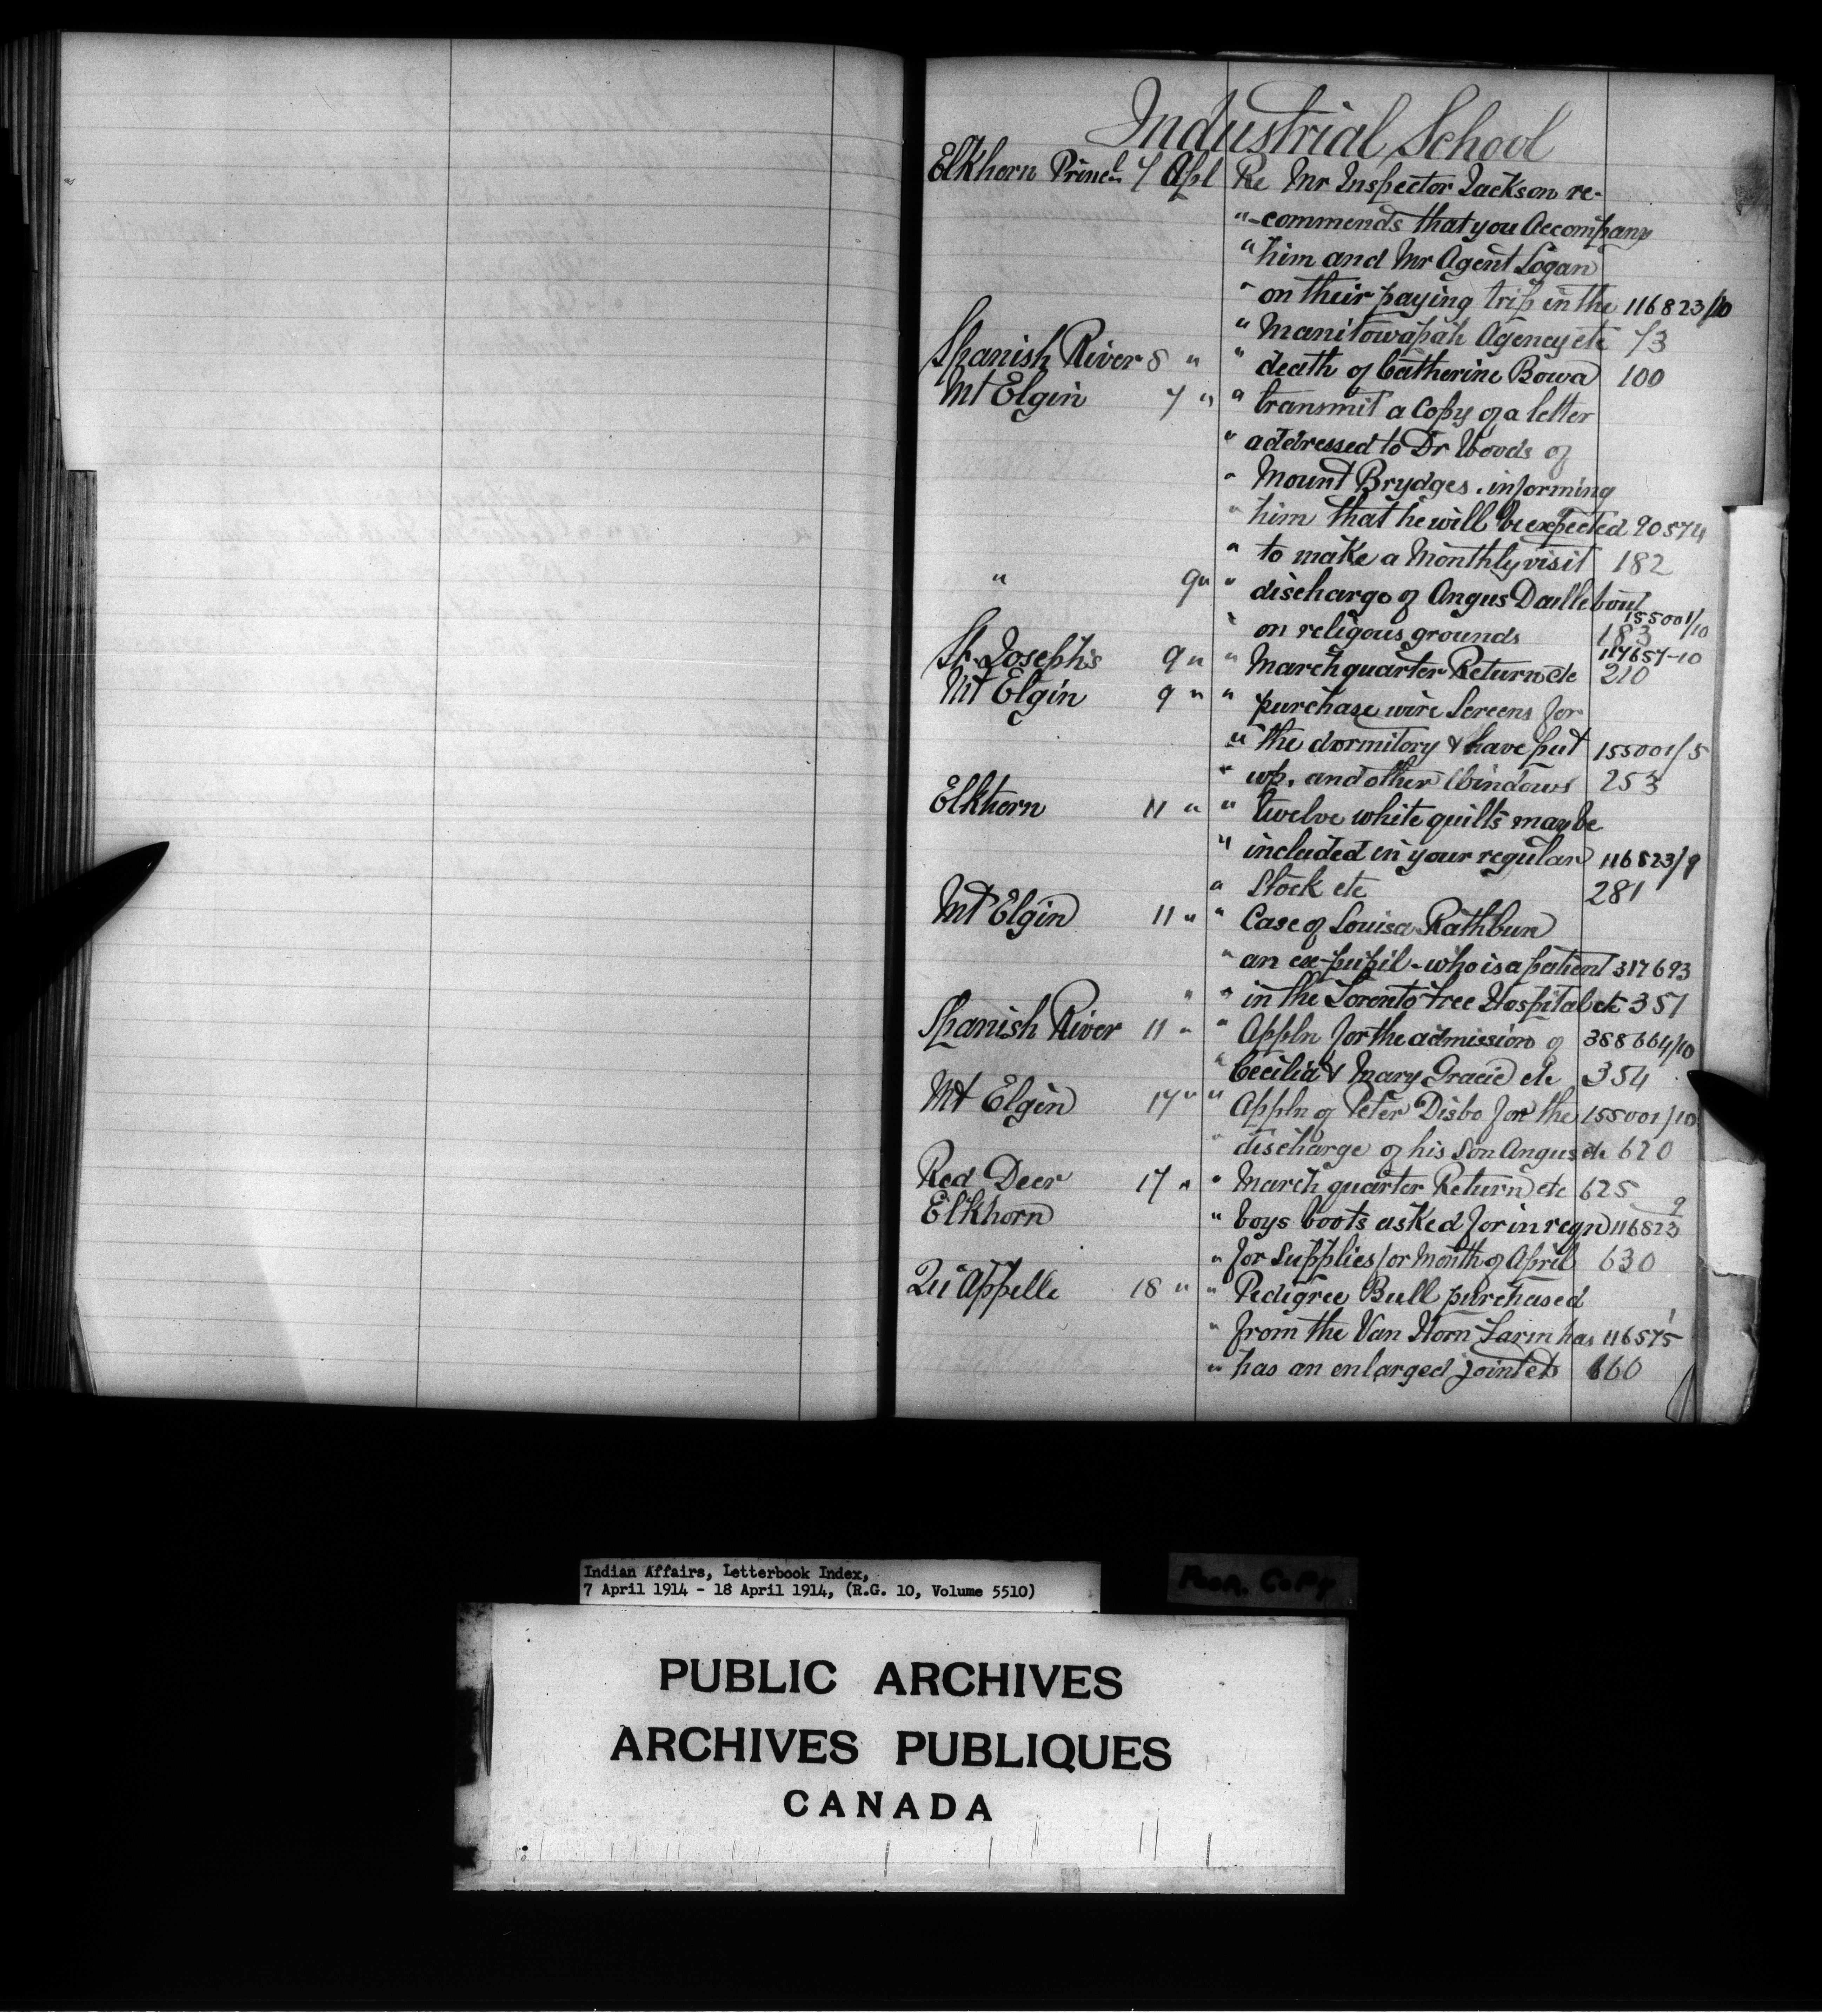 Industrial School
Elkhorn Princl. 7 Apl Re Mr Inspector Jackson re-
" -commends that you Accompany
" him and Mr Agent Logan
" on their paying trip in the 116823/10
" Manitowapah Agency etc 73
Spanish River 8 " " death of Catherine Bowa 100
Mt Elgin 7 " " transmit a Copy of a letter
" addressed to Dr Woods of
" Mount Brydges. informing
" him that he will be expected 90574
" to make a Monthly visit 182
" 9 " " discharge of Angus Daillebout
155001/10
" on religous grounds 183
117657-10
St. Joseph's 9 " " March quarter Return etc 210
Mt Elgin 9 " " purchase wire Screens for
" the dormitory & have put 155001/5
" up, and other Windows 253
Elkhorn 11 " " twelve white quilts may be
" included in your regular 116823/9
" Stock etc 281
Mt Elgin 11 " " Case of Louisa Rathbun
" an ex-pupil - who is a patient 317693
" " in the Toronto Free Hospital etc 357
Spanish River 11 " " Appln for the admission of 388664/10
" Cecilia & Mary Gracie etc 354
Mt Elgin 17 " " Appln of Peter Disbo for the 155001/10
" discharge of his Son Angus etc 620
Red Deer 17 " " March quarter Return etc 625
Elkhorn " boys boots asked for in reqn 116823/9
" for Supplies for Month of April 630
Qu'Appelle 18 " " Pedigree Bull purchased
" from the Van Horn Farm has 116575/1
" has an enlarged joint etc 660
Indian Affairs, Letterbook Index,
7 April 1914 - 18 April 1914, (R.G. 10, Volume 5510)
Poor Copy
PUBLIC ARCHIVES
ARCHIVES PUBLIQUES
CANADA